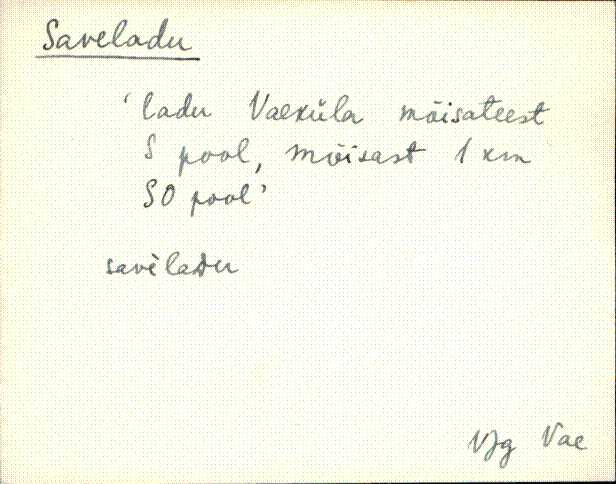 Saveladu
'ladu Vaeküla mõisateest
S pool, mõisast 1 km
SO pool'
savèladu
VJg Vae